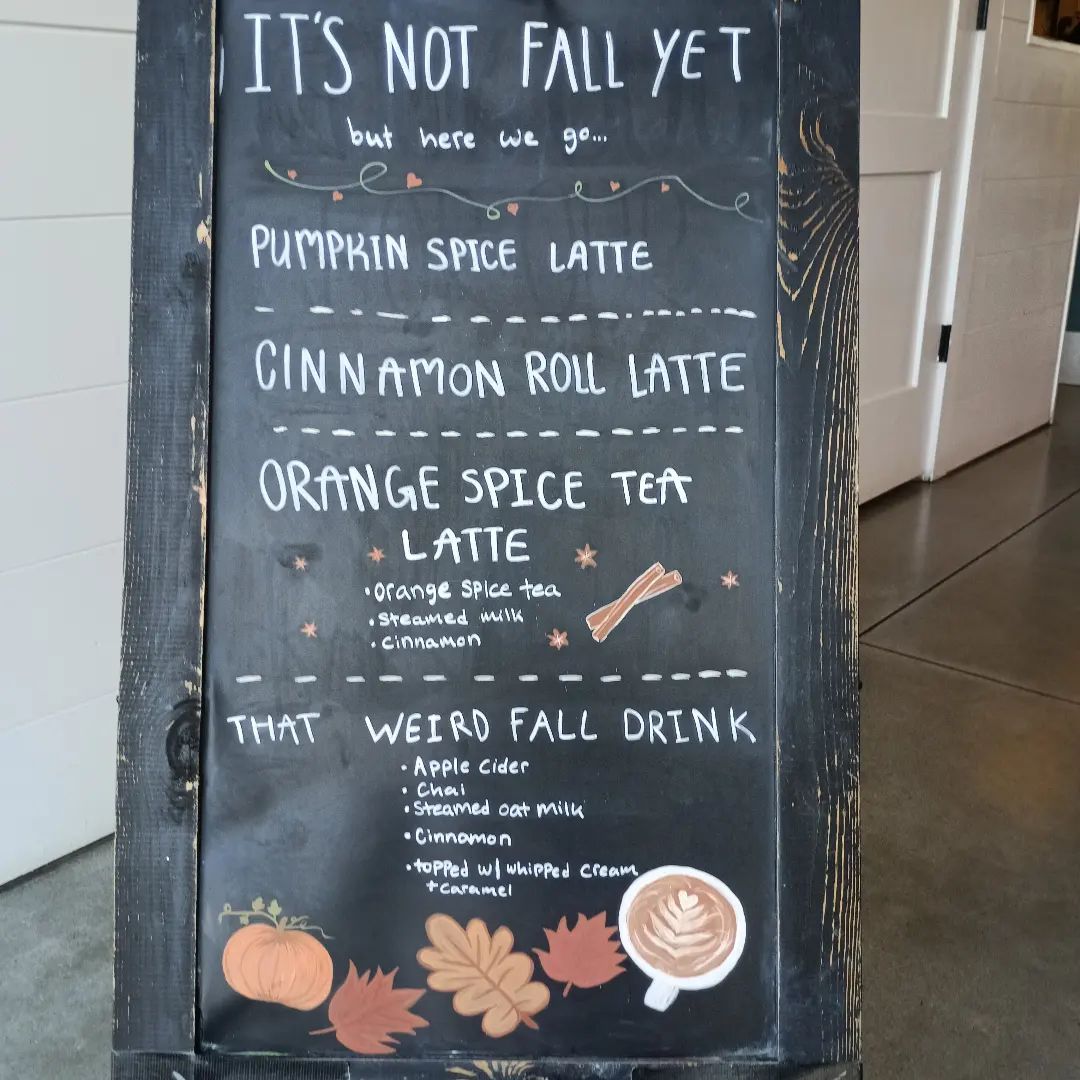 IT'S NOT FALL YET
but here we go...
PUMPKIN SPICE LATTE
CINNAMON ROLL LATTE
ORANGE SPICE TEA
LATTE
• Orange Spice tea
• Steamed milk
• Cinnamon
THAT WEIRD FALL DRINK
• Apple Cider
• Chai
• Steamed oat milk
• Cinnamon
• topped w/ whipped cream
+ caramel